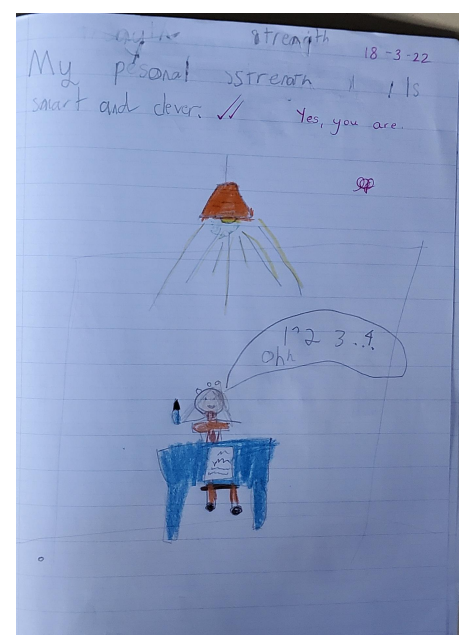 strength
18-3-22
My pesonal strength Is
smart and clever.
Yes, you are.
1 2 3..4.
Ohh